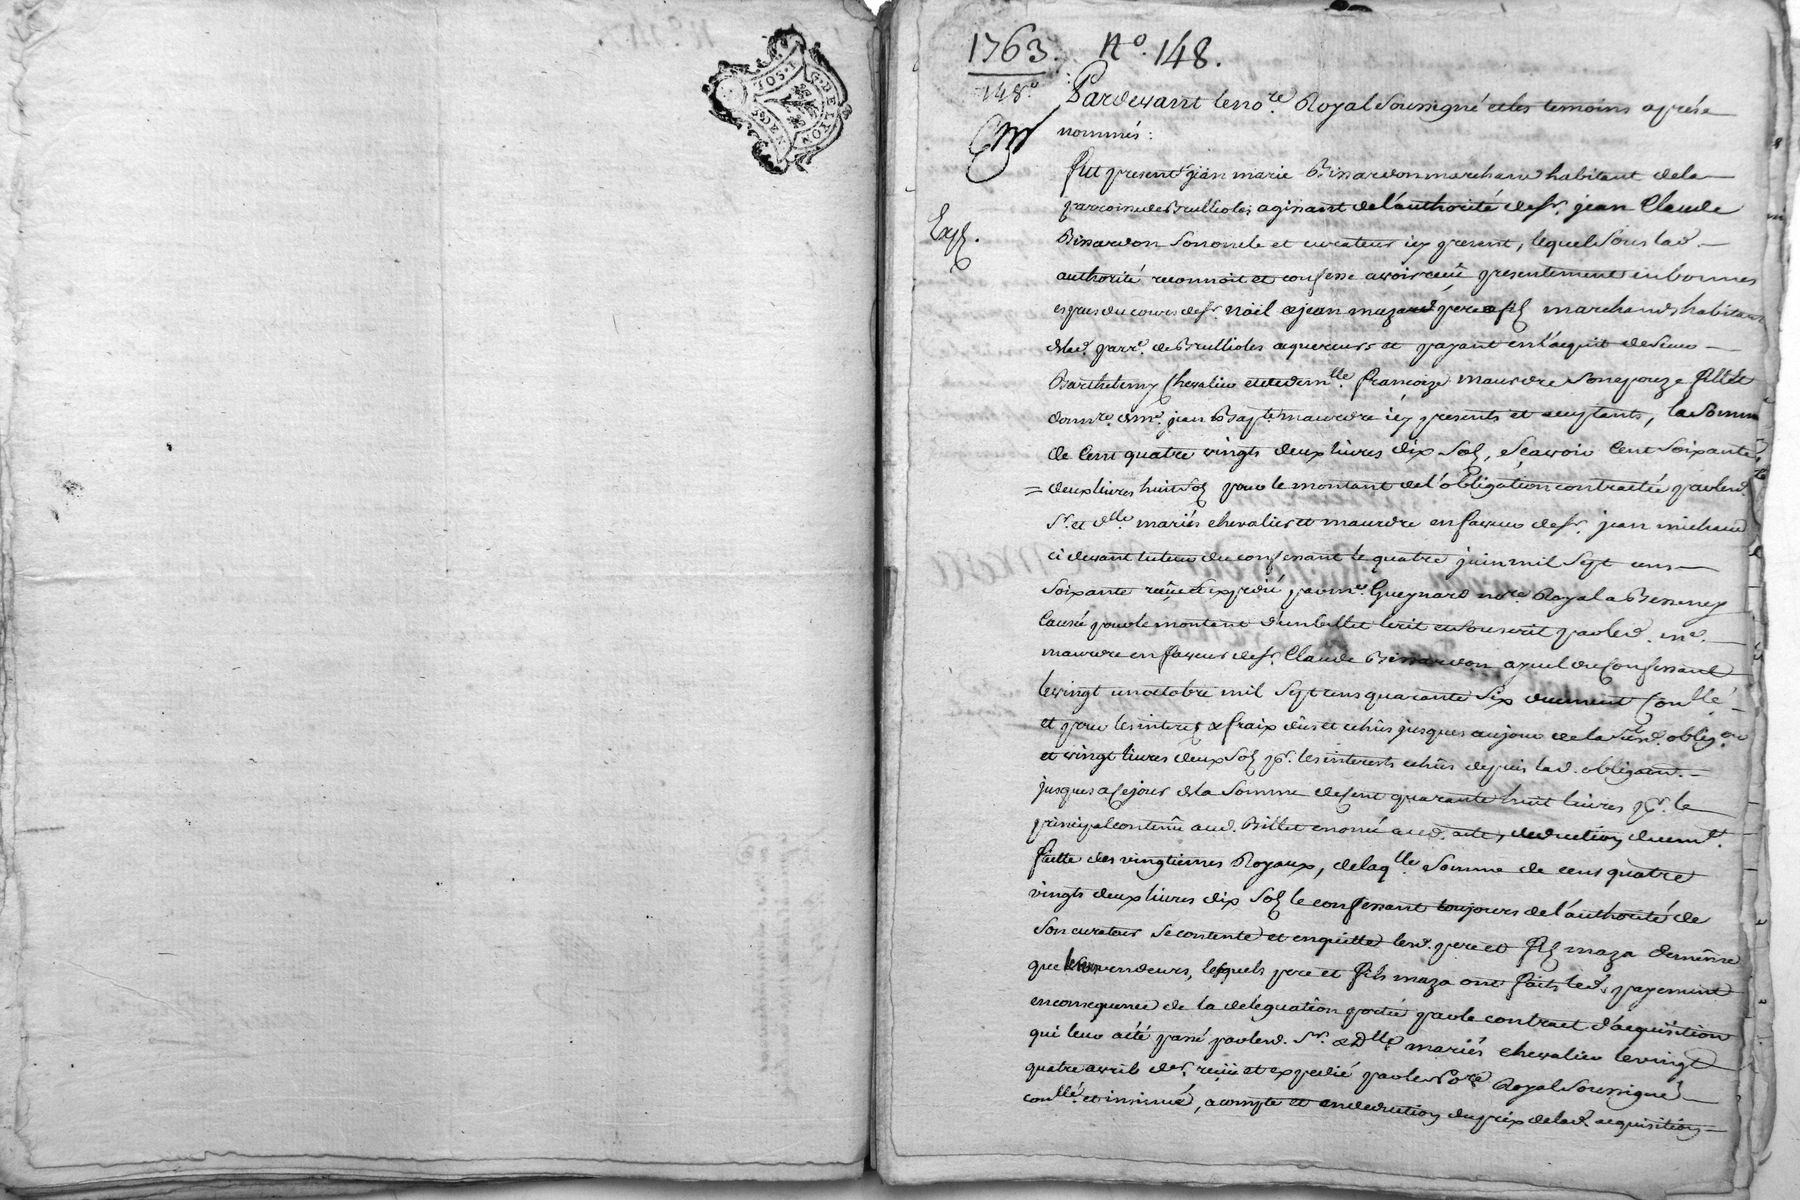 1763. N.° 148.
148.°
Pardevant le no.re Royal soussigné et les temoins aprés
nommés :
fut present s.r jean marie Bissardon marchand habitant de la
parroisse de Brulliolles agissant de l'authorité de s.r jean Claude
Exp.
Bissardon son oncle et curateur icy present, lequel sous lad.
authorité reconnoit et confesse avoir reçû presentement en bonnes
especes du cours de s.r Noël et jean mazard pere et fils marchands habitans
de lad. parr.e de Brullioles aquereurs et payant en l'acquit de sieur
Barthelemy Chevalier et de dem.lle francoize maurdre son epouze fille de
de m.e jean Bap.te maurdre icy presents et acceptants, la somme
de Cent quatre vingts deux livres dix sols, sçavoir Cent soixante
= deux livres huit sols pour le montant de l'obligation contractée par led.
S.r et d.lle mariés chevalier et maurdre en faveur de s.r jean michaud
ci devant tuteur du confessant le quatre juin mil sept cens
soixante reçûe et expedié par m.e Gueynard no.re Royal a Bessenay
causée pour le montant d'un billet écrit et souscrit par led. m.e
maurdre en faveur de s.r Claude Bissardon ayeul du confessant
le vingt un octobre mil sept cens quarante six duement Con.llé
et pour les interets et fraix dûs et echûs jusques au jour de la sud. oblig.on
et vingt livres deux sols p.r les interests echûs depuis lad. obligaon.
jusques a ce jour de la somme de Cent quarante huit livres p.r le
principal contenu aud. Billet enoncé aud. acte, deduction duem.t
faitte des vingtiemes Royaux, de laq.lle somme de cent quatre
vingts deux livres dix sols le confessant toujours de l'authorité de
son curateur se contente et en quitte lesd. pere et fils maza de même
que les vendeurs, lesquels pere et fils maza ont faits led. payement
en consequence de la deleguation portée par le contract d'acquisition
qui leur a été passé par lesd. S.r et D.lle mariés chevalier le vingt
quatre avril der. reçu et expedié par le No.re Royal soussigné
con.llé et insinué, a compte et en deduction du prix de lad. acquisition